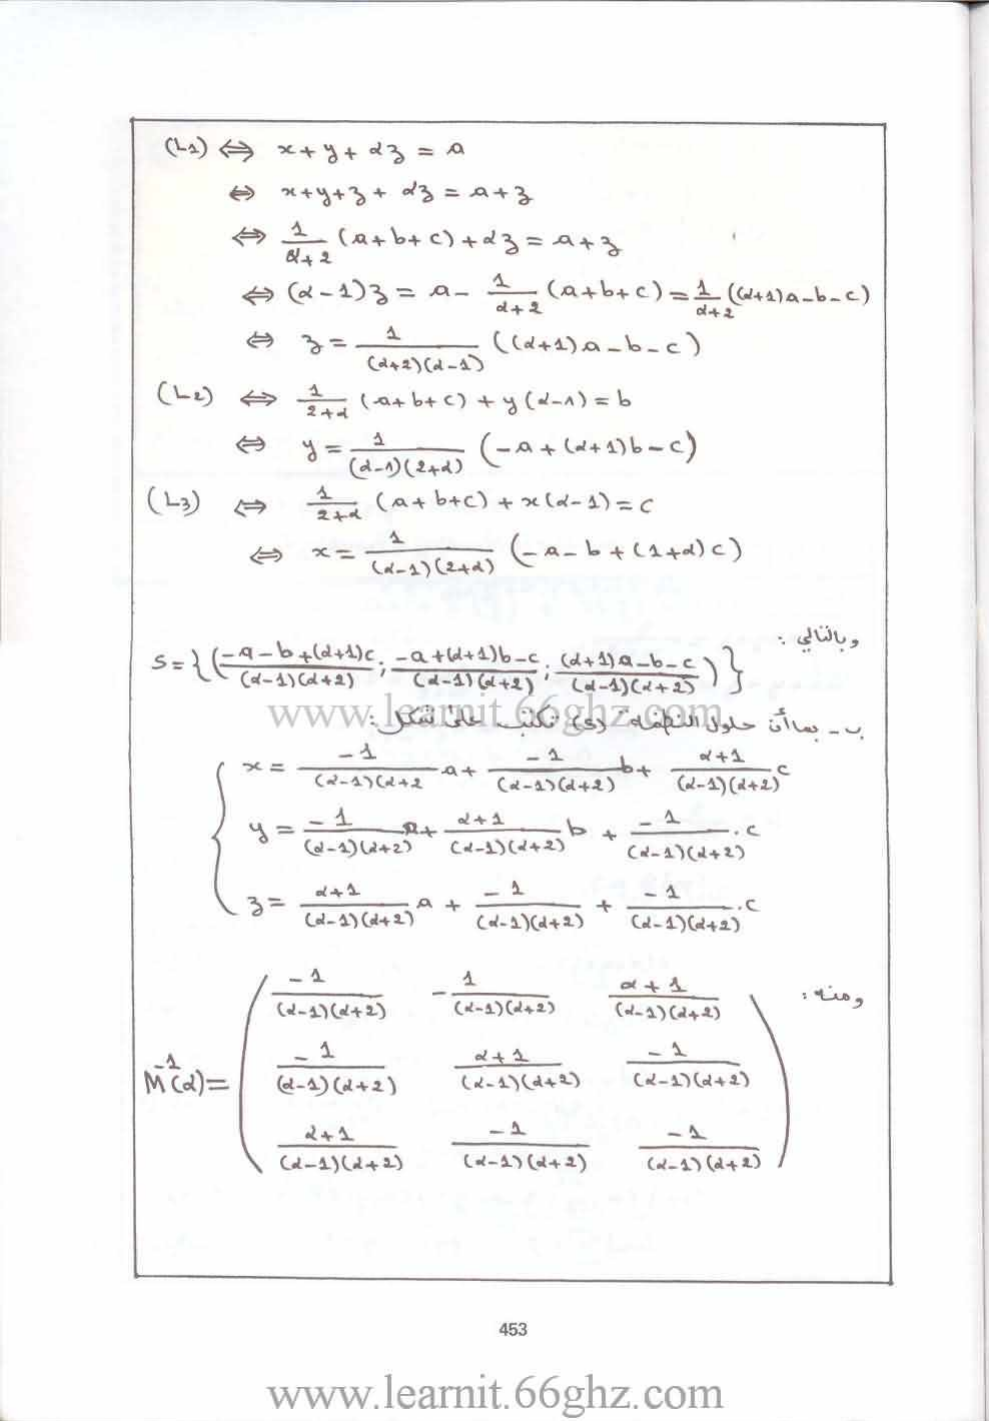 (L1) ⟺ x + y + αz = a
⟺ x+y+z + αz = a+z
⟺ 1/(α+2) (a+b+c) + αz = a+z
⟺ (α-1)z = a - 1/(α+2) (a+b+c) = 1/(α+2) ((α+1)a-b-c)
⟺ z = 1/((α+2)(α-1)) ((α+1)a-b-c)
(L2) ⟺ 1/(2+α) (a+b+c) + y(α-1) = b
⟺ y = 1/((α-1)(2+α)) (-a+(α+1)b-c)
(L3) ⟺ 1/(2+α) (a+b+c) + x(α-1) = c
⟺ x = 1/((α-1)(2+α)) (-a-b+(1+α)c)
وبالتالي :
S = {((-a-b+(α+1)c)/((α-1)(α+2)) ; (-a+(α+1)b-c)/((α-1)(α+2)) ; ((α+1)a-b-c)/((α-1)(α+2)))}
www.learnit.66ghz.com
ب - بما أن حلول النظمة (S) تكتب على شكل :
x = -1/((α-1)(α+2) a + -1/((α-1)(α+2)) b + (α+1)/((α-1)(α+2)) c
y = -1/((α-1)(α+2)) a + (α+1)/((α-1)(α+2)) b + -1/((α-1)(α+2)) .c
z = (α+1)/((α-1)(α+2)) a + -1/((α-1)(α+2)) + -1/((α-1)(α+2)) .c
ومنه :
M⁻¹(α) = ( -1/((α-1)(α+2)) -1/((α-1)(α+2)) (α+1)/((α-1)(α+2))
-1/((α-1)(α+2)) (α+1)/((α-1)(α+2)) -1/((α-1)(α+2))
(α+1)/((α-1)(α+2)) -1/((α-1)(α+2)) -1/((α-1)(α+2)) )
453
www.learnit.66ghz.com